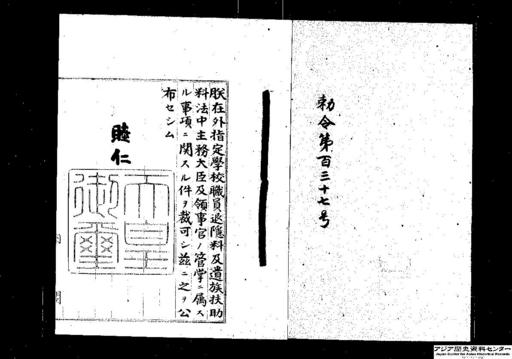 勅令第百三十七号
朕在外指定學校職員退隱料及遺族扶助
料法中主務大臣及領事官ノ管掌ニ属ス
ル事項ニ関スル件ヲ裁可シ茲ニ之ヲ公
布セシム
睦仁
天皇
御璽
アジア歴史資料センター
Japan Center for Asian Historical Records